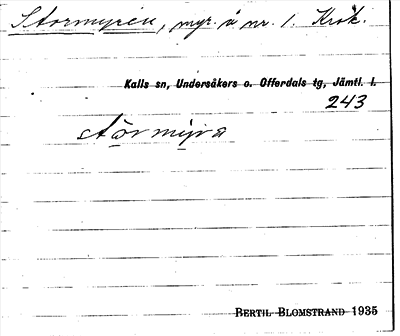 Stormyren, myr å nr. 1. Krok.
Kalls sn, Undersåkers o. Offerdals tg, Jämtl. l.
243
störmyra
BERTIL BLOMSTRAND 1935